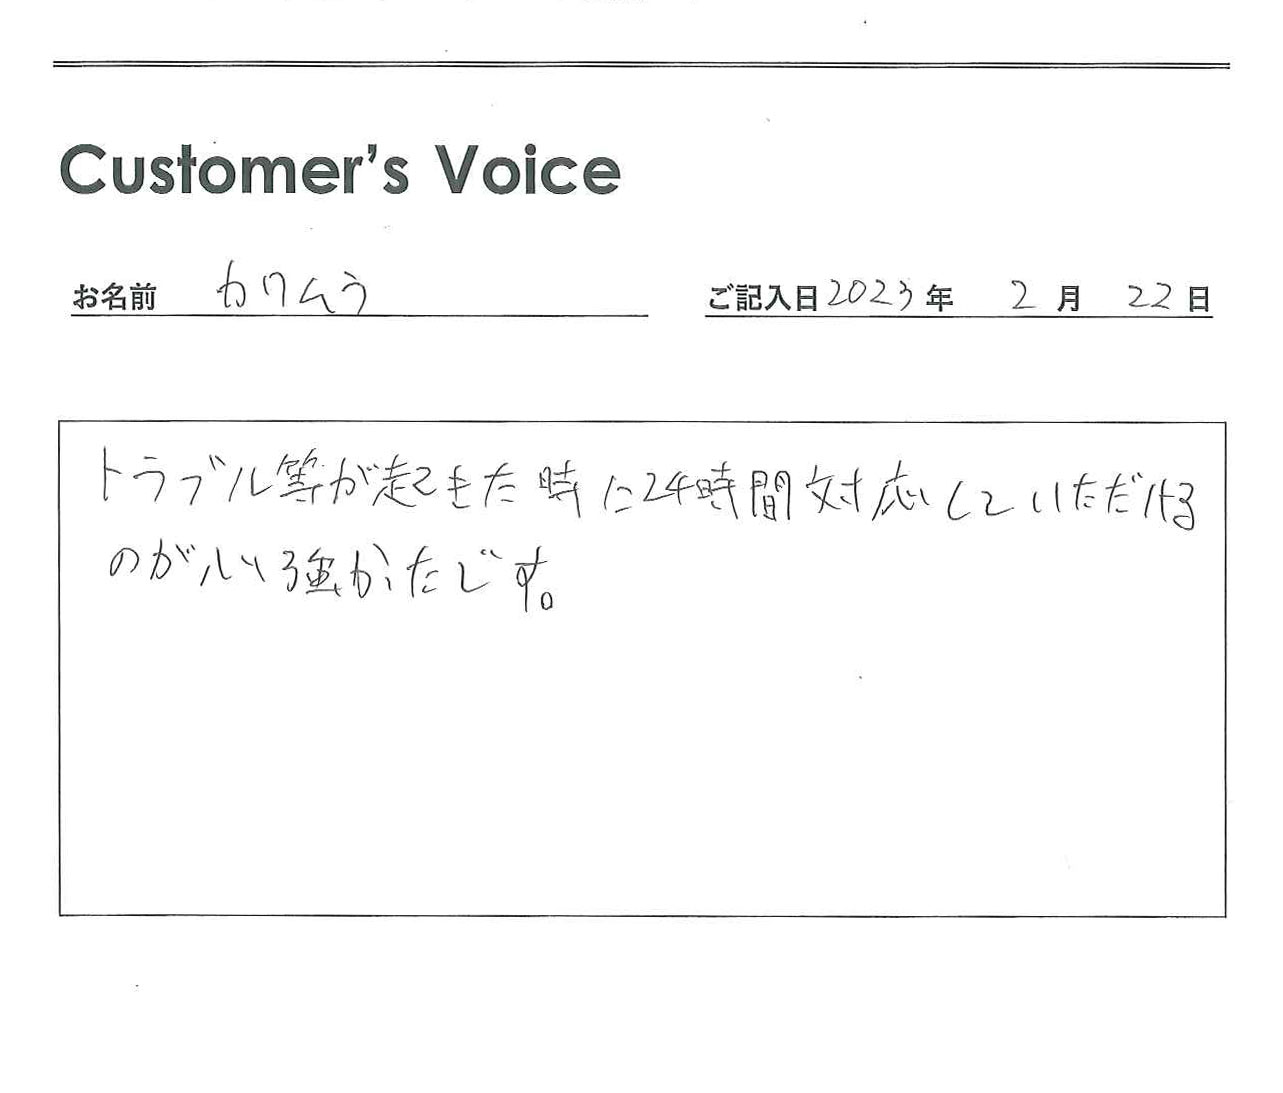 Customer's Voice
お名前 カワムラ
ご記入日 2023 年 2 月 22 日
トラブル等が起きた時に24時間対応していただける
のが心強かたです。